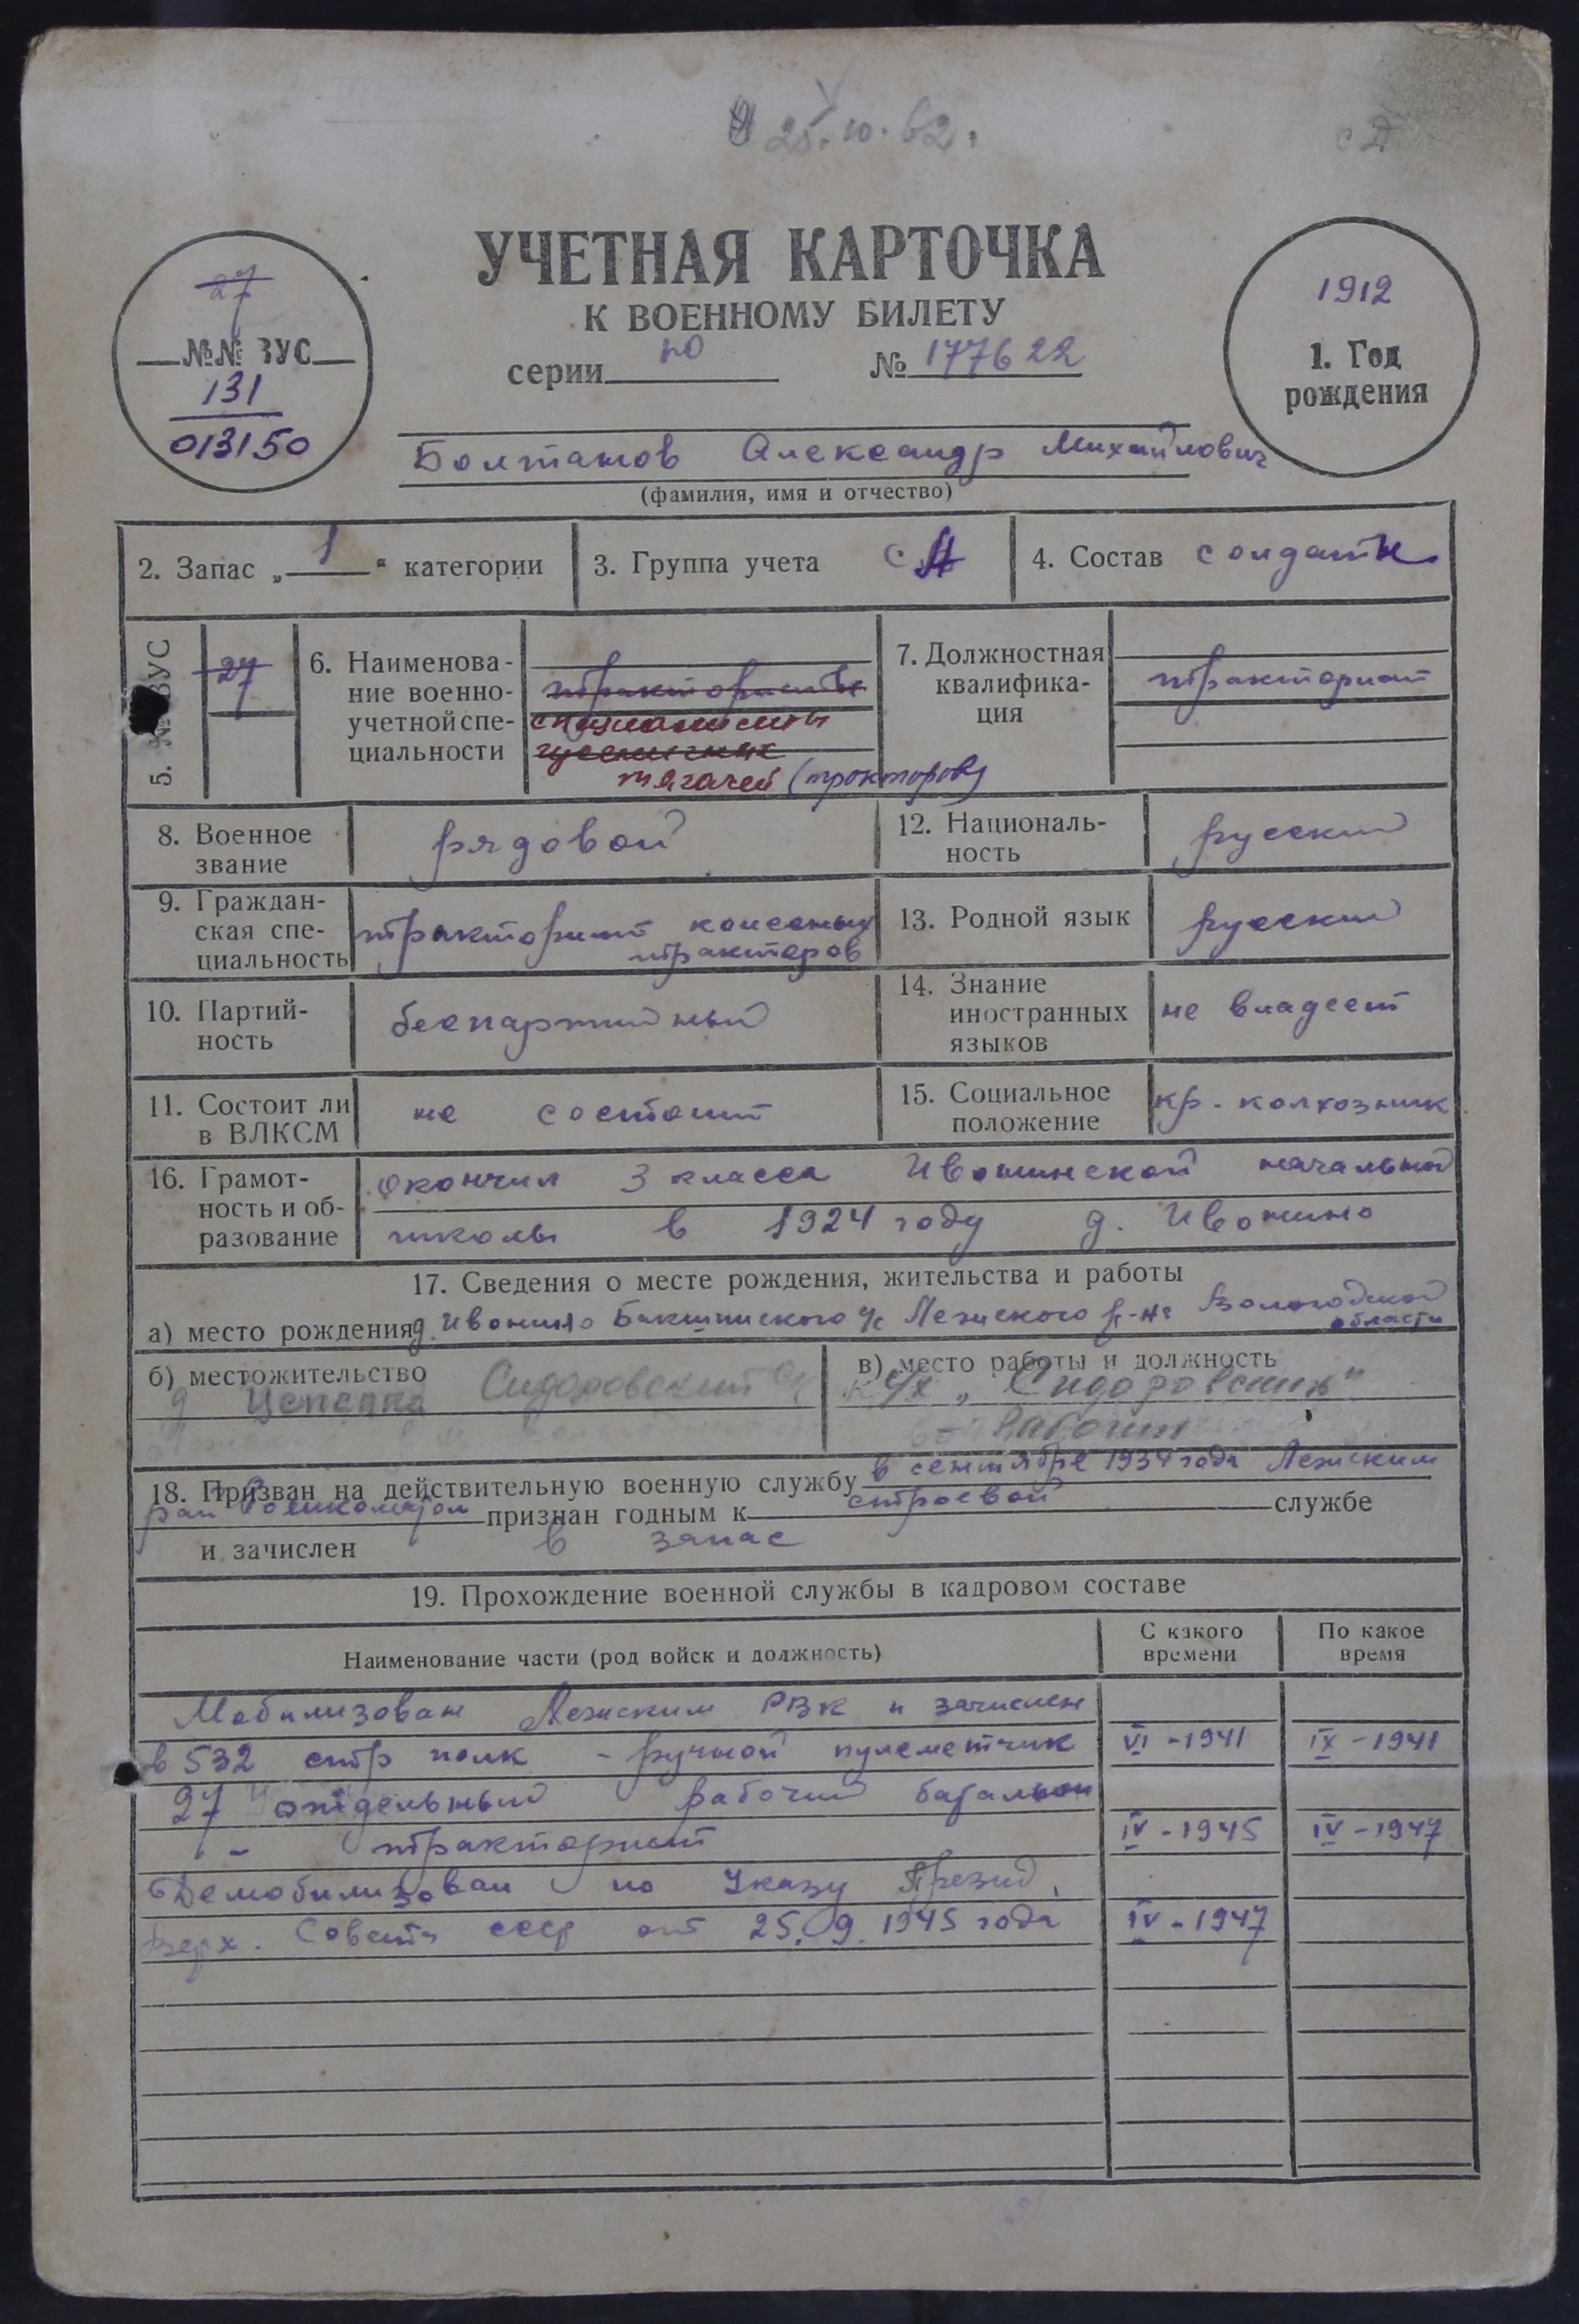 25.10.62.
УЧЕТНАЯ КАРТОЧКА
К ВОЕННОМУ БИЛЕТУ
серии но № 177622
27
№№ ВУС
131
013150
1912
1. Год
рождения
Болтанов Александр Михайлович
(фамилия, имя и отчество)
2. Запас „ 1 “ категории
3. Группа учета СА
4. Состав солдаты
5. № ВУС 27
6. Наименова-
ние военно-
учетной спе-
циальности
трактористы
специалисты
гусеничных
тягачей (тракторов)
7. Должностная
квалифика-
ция
тракторист
8. Военное
звание
рядовой
12. Националь-
ность
русский
9. Граждан-
ская спе-
циальность
тракторист колесных
тракторов
13. Родной язык русский
10. Партий-
ность
беспартийный
14. Знание
иностранных
языков
не владеет
11. Состоит ли
в ВЛКСМ
не состоит
15. Социальное
положение
кр-колхозник
16. Грамот-
ность и об-
разование
окончил 3 класса Ивонинской начальной
школы в 1924 году д. Ивонино
17. Сведения о месте рождения, жительства и работы
а) место рождения д. Ивонино Бакшинского с/с Лежского р-на Вологодской
области
б) местожительство
д Цепенка Сидоровский
в) место работы и должность
с/х „Сидоровский“
Рабочий
18. Призван на действительную военную службу в сентябре 1934 года Лежским
рай Военкоматом признан годным к строевой службе
и зачислен в запас
19. Прохождение военной службы в кадровом составе
Наименование части (род войск и должность)
С какого
времени
По какое
время
Мобилизован Лежским РВК и зачислен
в 532 стр полк - ручной пулеметчик VI - 1941 IX - 1941
27 отдельный рабочий батальон
- тракторист IV - 1945 IV - 1947
Демобилизован по Указу Презид.
Верх. Совета СССР от 25.9.1945 года IV - 1947